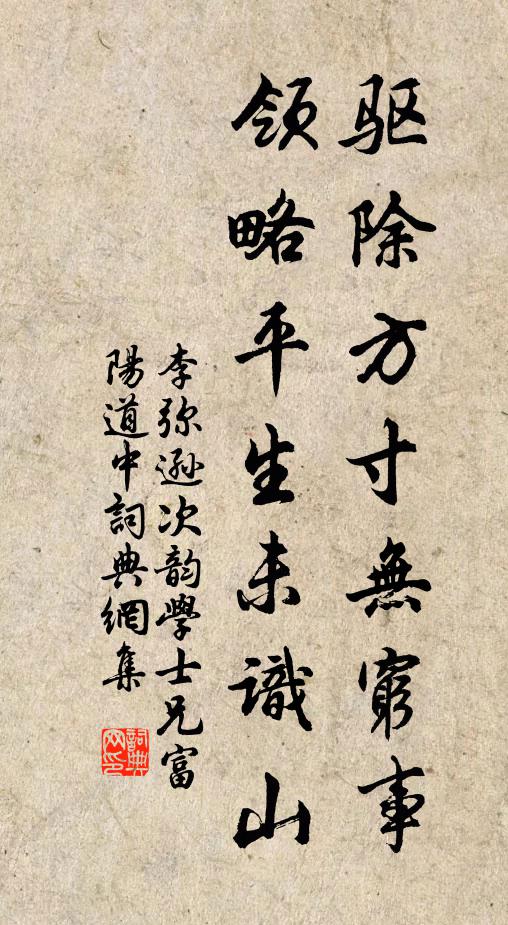 驱除方寸無窮事
領略平生未識山
李弥遜次韵學士兄富
陽道中詞典網集
詞典网印